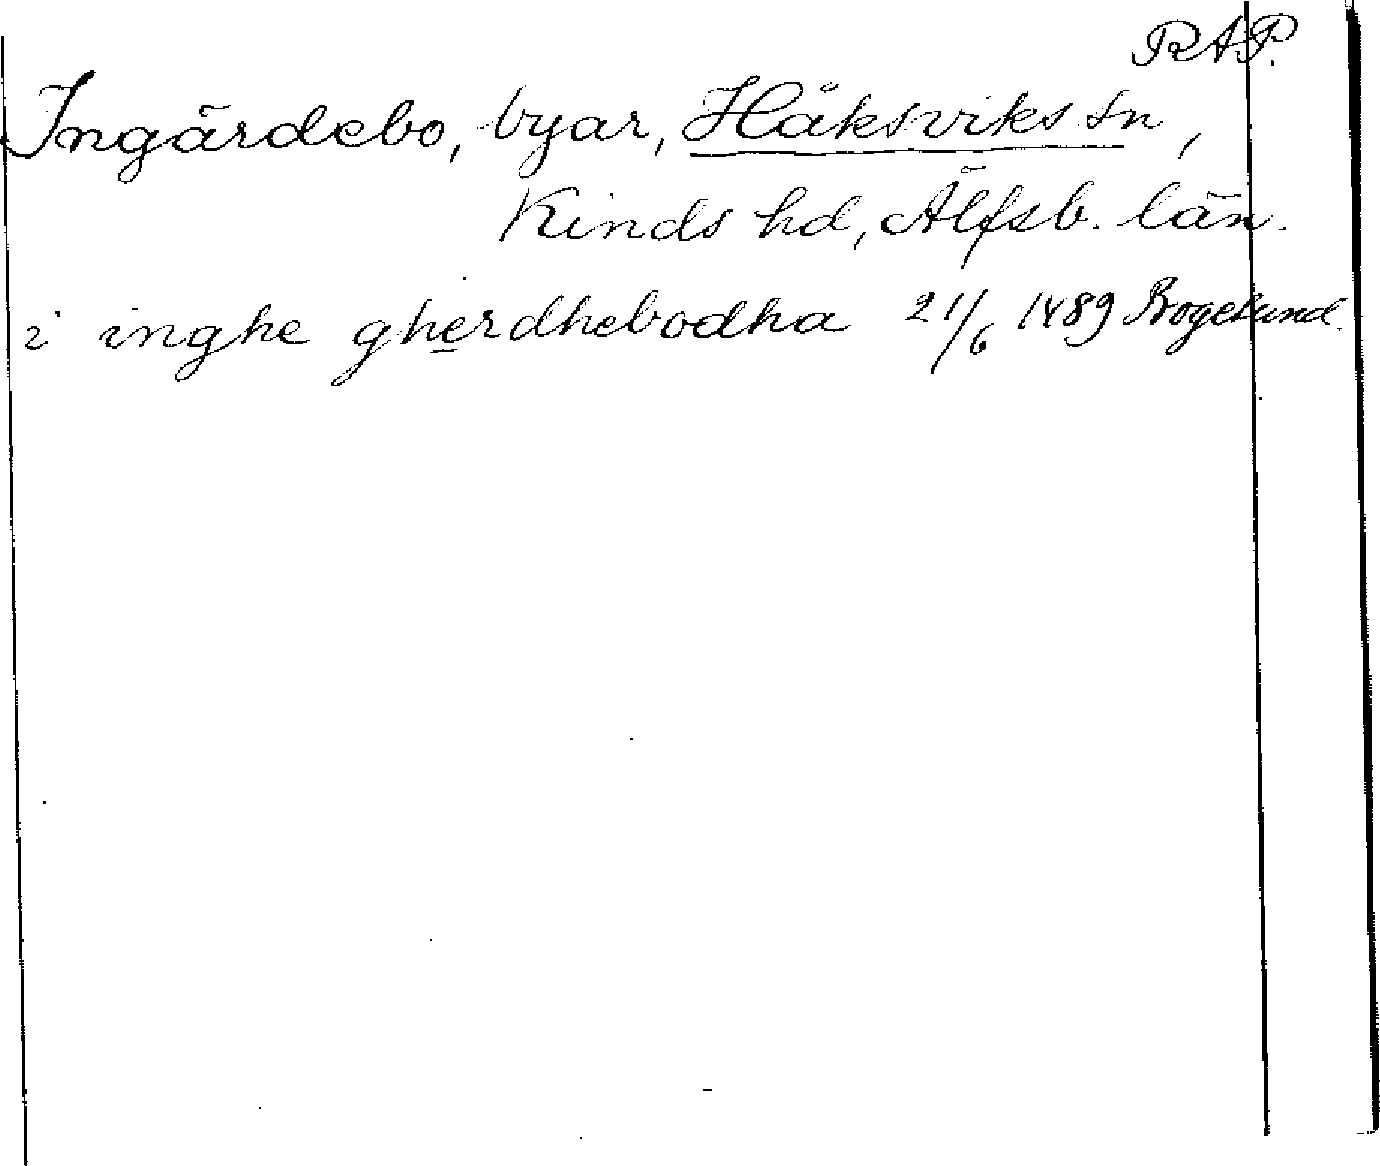 RAP.
Ingärdebo, byar, Håksviks sn,
Kinds hd, Älfsb. län.
i inghe gherdhebodha 21/6 1489 Bogelund.